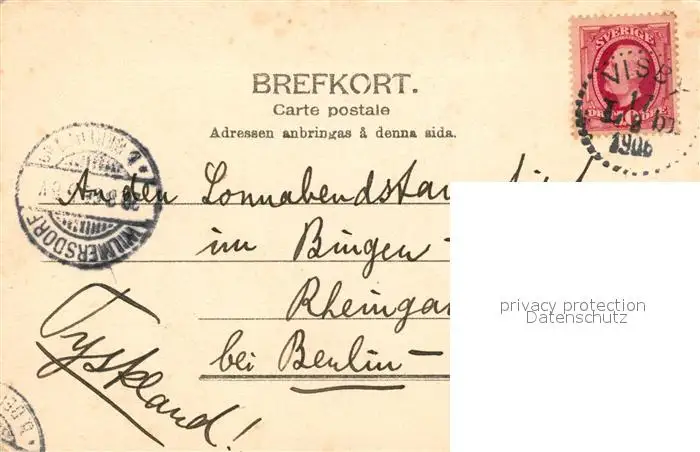 BREFKORT.
Carte postale
Adressen anbringas å denna sida.
SVERIGE
VISBY
17
1906
WILMERSDORF
An den
im Bingen-
bei Berlin -
Tyskland!
privacy protection
Datenschutz